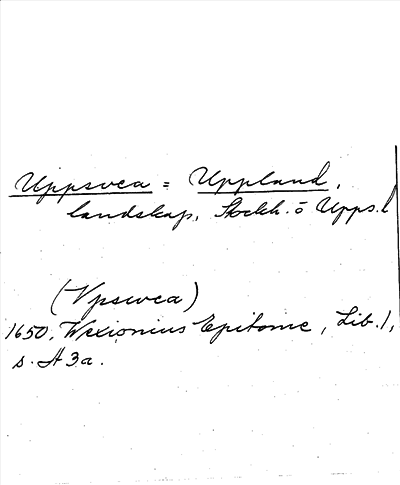 Uppsvea = Uppland,
landskap, Stockh. o Upps. l
(Vpswea)
1650. Wexionius Epitome, Lib. 1,
s. A 3 a.